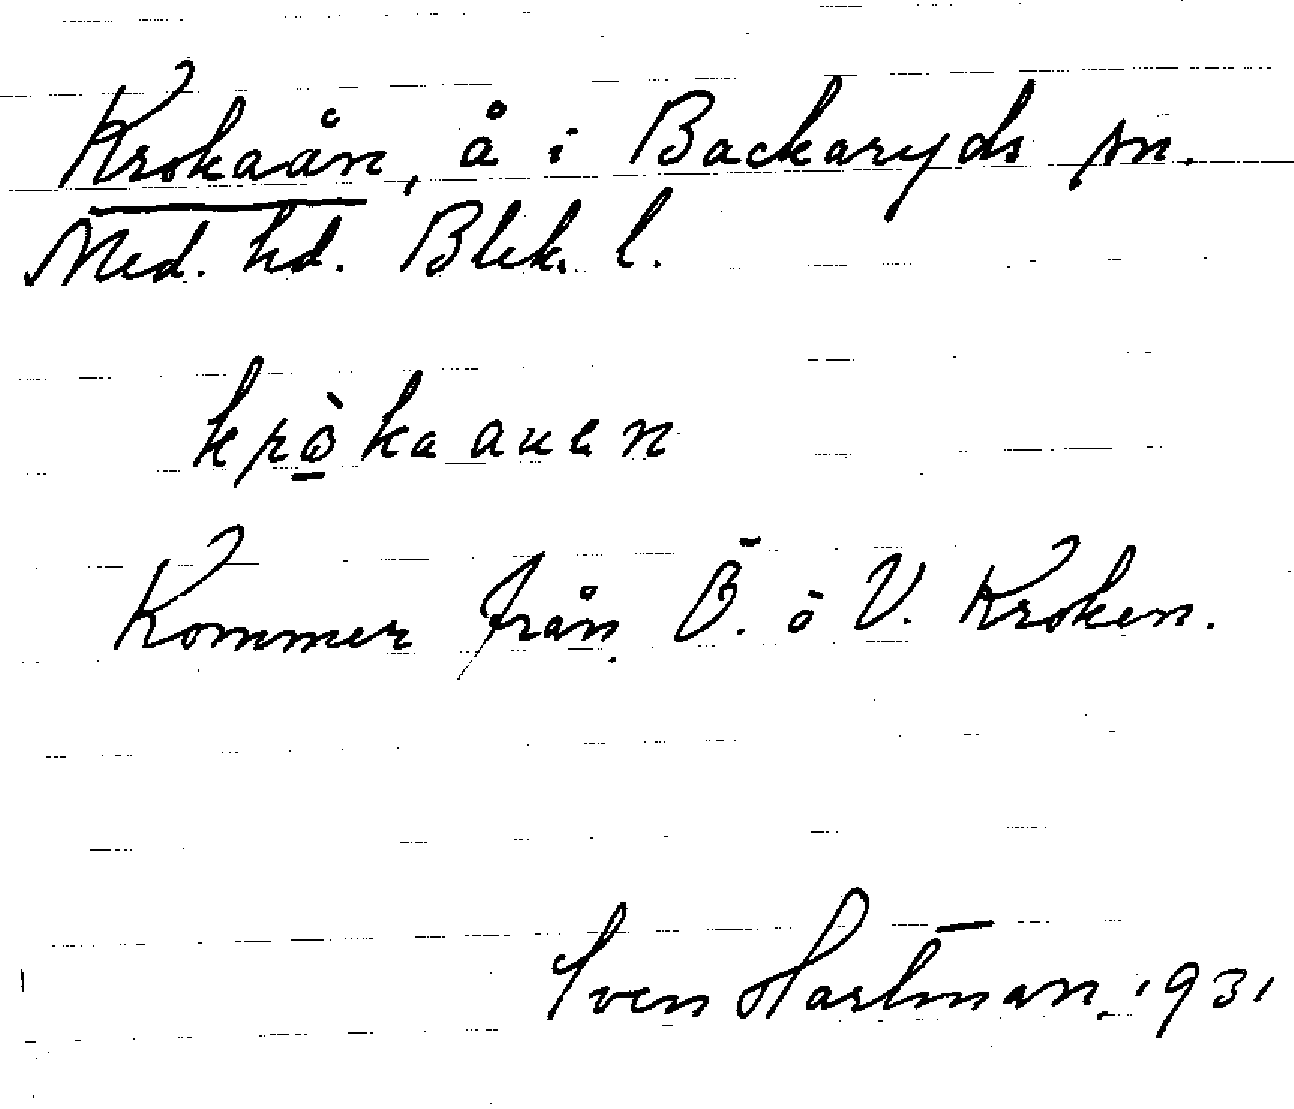 Krokaån, å i Backaryds sn.
Med. hd. Blek. l.
Kommer från Ö. o V. Kroken.
Sven Hartman, 1931